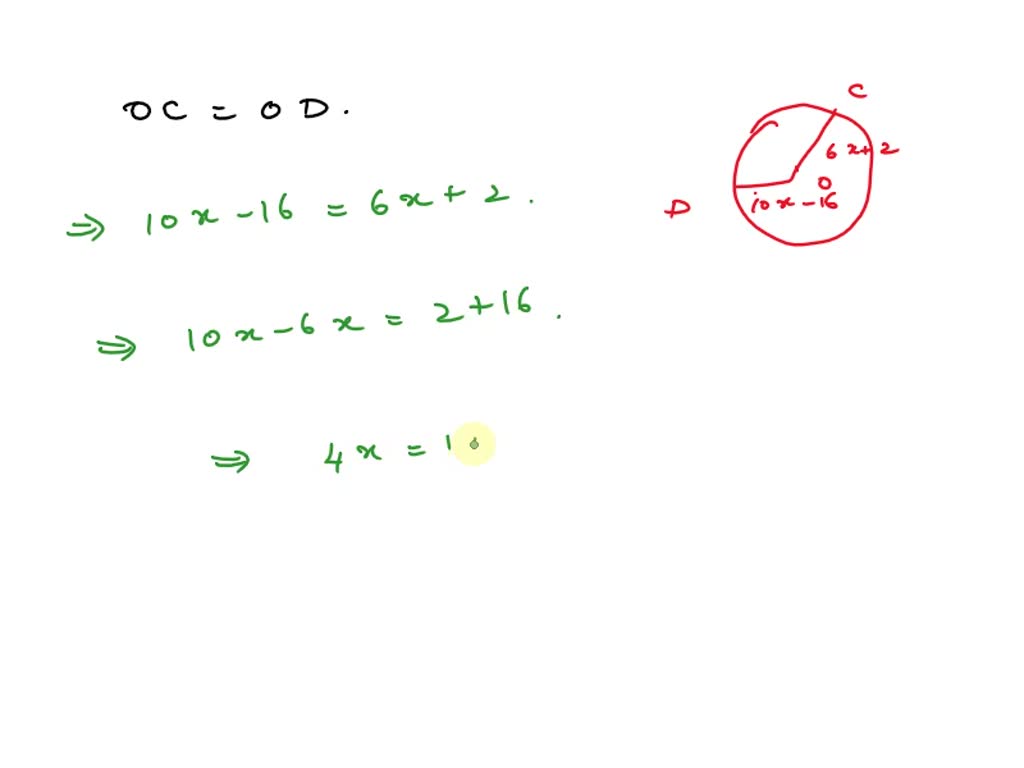 OC = OD.
⇒ 10x - 16 = 6x + 2.
⇒ 10x - 6x = 2 + 16.
⇒ 4x = 1
C
6x + 2
O
D
10x - 16